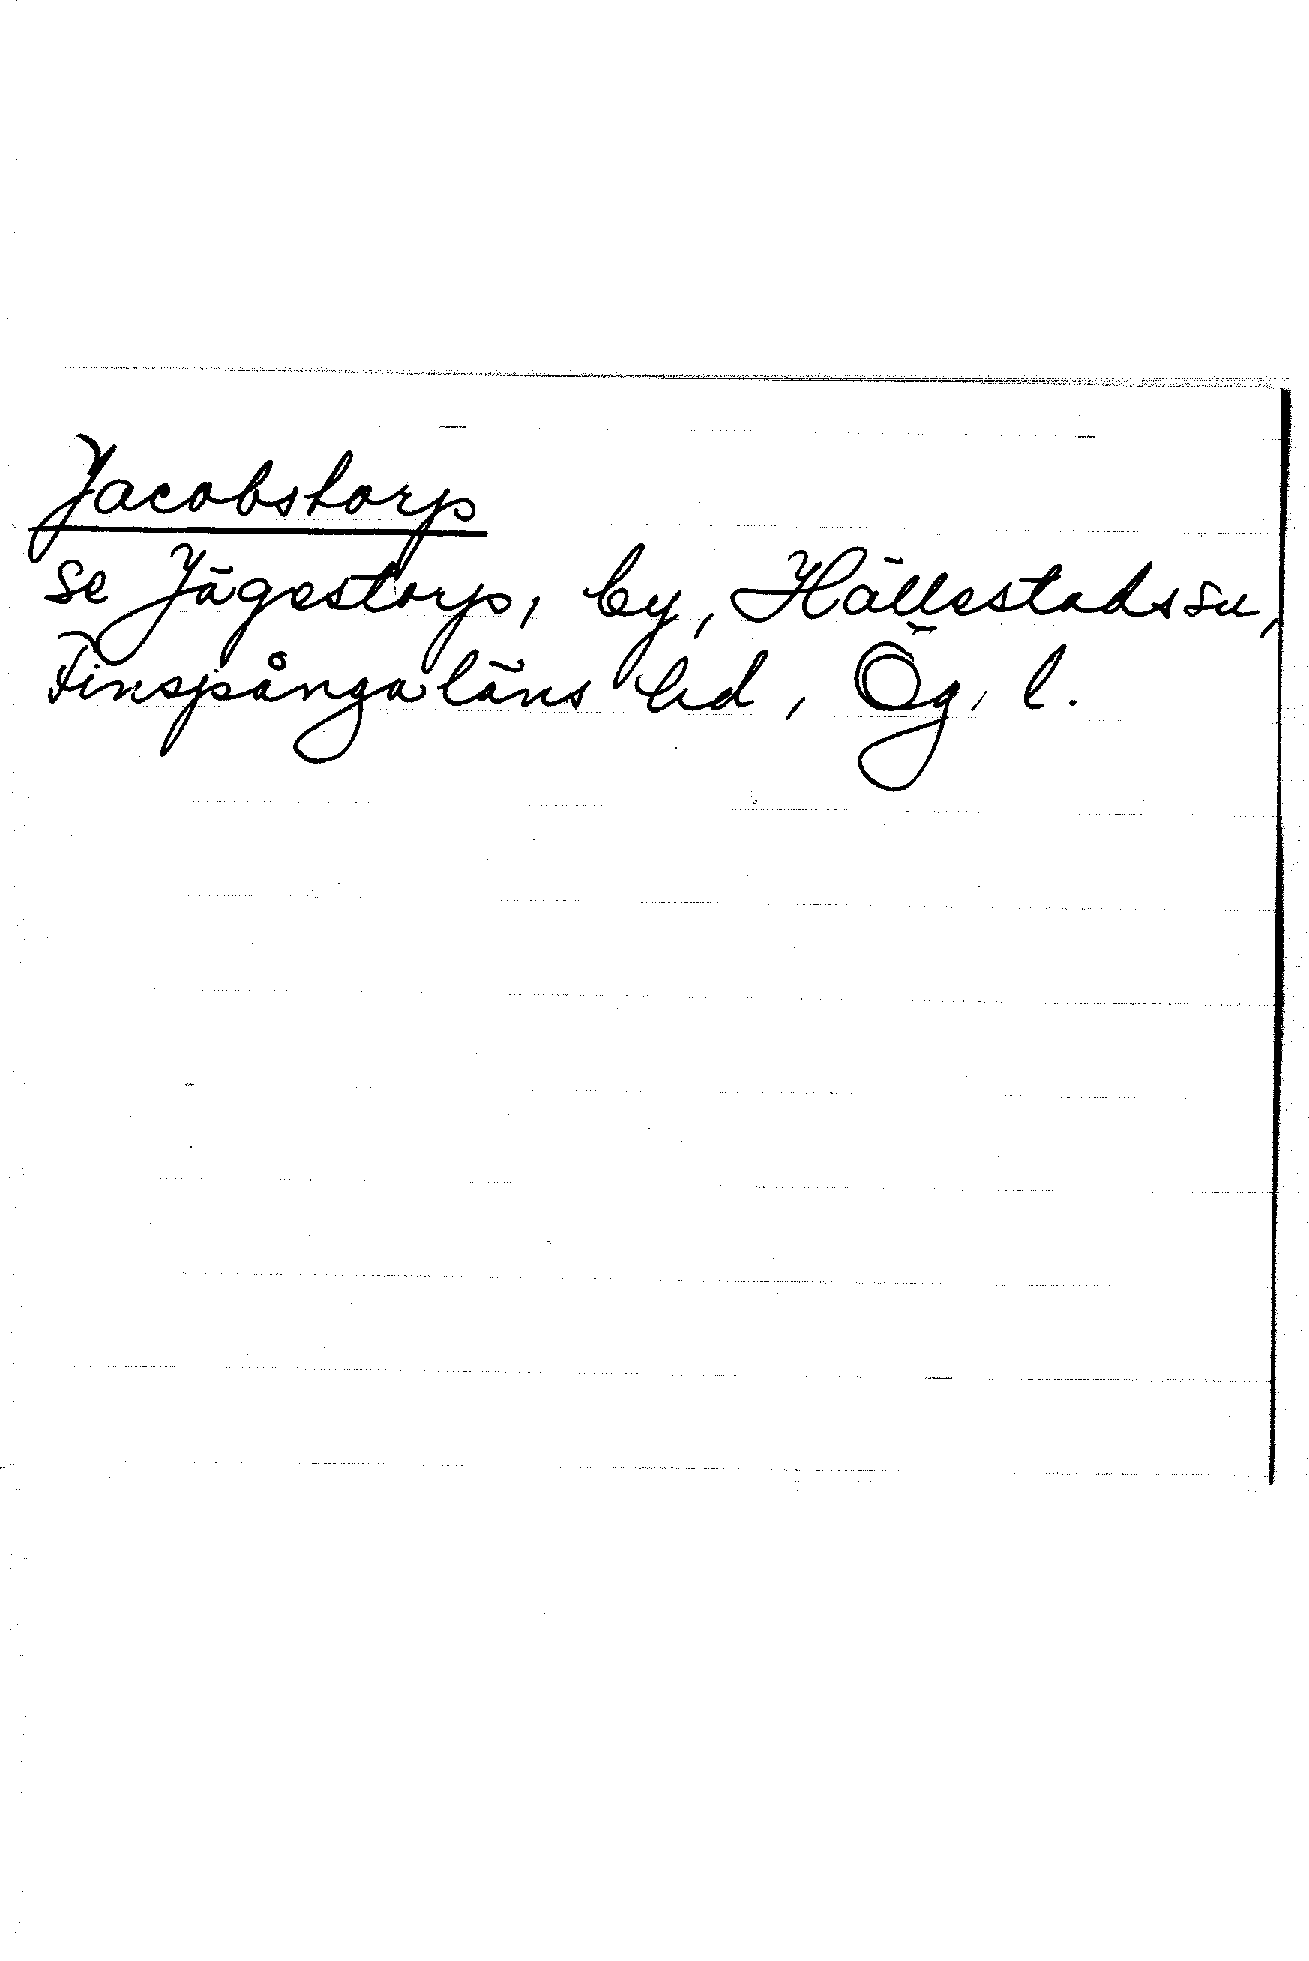 Jacobstorp
se Jägestorp, by, Hällestads sn,
Finspånga läns hd, Ög. l.